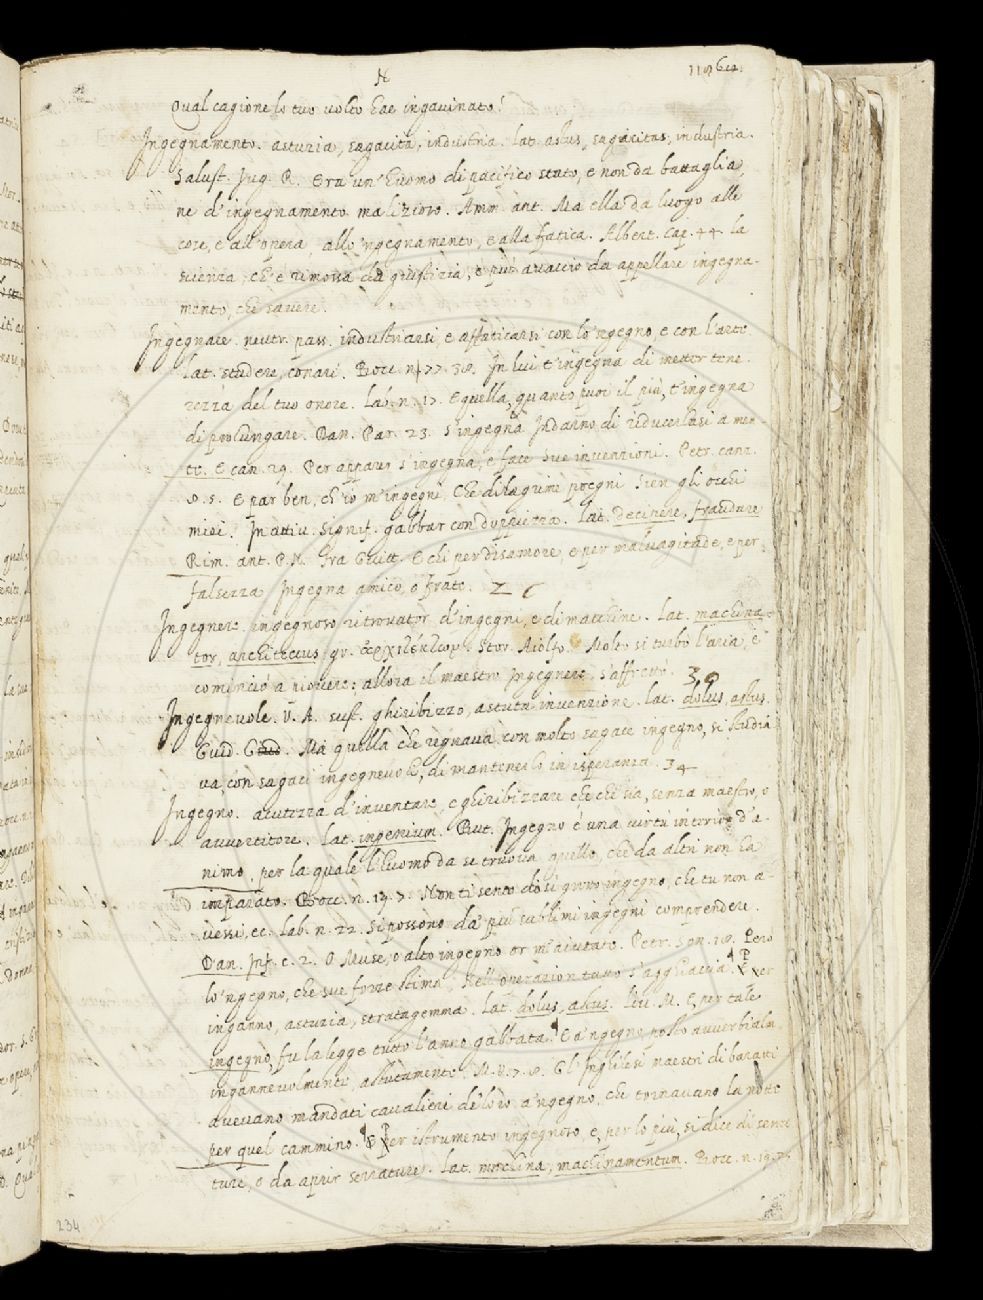 N
Qual cagione lo tuo volto hae ingavinato!
Ingegnamento. astuzia, sagacità, industria. Lat. astus, sagacitas, industria.
Salust. Jug. R. Era un' huomo di pacifico stato, e non da battaglia,
ne d'ingegnamento malizioso. Amm. ant. Ma ella da luogo alle
cose, e all'opera, allo 'ngegnamento, e alla fatica. Albert. Cap. 44. la
scienza, ch'è rimossa da giustizia, è più avaccio da appellare ingegna-
mento, che savere.
Ingegnare. neutr. pass. industriarsi, e affaticarsi con lo 'ngegno, e con l'arte
Lat. studere, conari. Bocc. n. 77. 38. In lui t'ingegna di metter tene
rezza del tuo onore. Lab. n. 17. E quella, quanto puoi il più, t'ingegna
di prolungare. Dan. Par. 23. s'ingegna Indarno di riducerlasi a men-
te. E can. 29. Per apparer s'ingegna, e face sue invenzioni. Petr. canz.
8. 5. E par ben, ch'io m'ingegni, Che di lagrime pregni Sien gli occhi
miei. In attiv. signif. gabbar con doppiezza. Lat. decipere, fraudare
Rim. ant. P. N. Fra Guitt. E chi per disamore, e per malvagitade, e per
falsezza Ingegna amico, o frate.
Ingegnere. ingegnoso ritrovator d'ingegni, e di macchine. Lat. machina
tor, architectus. gr. ἀρχιτέκτων. Stor. Aiolf. Molto si turbò l'aria, e
cominciò a piovere: allora il maestro Ingegnere s'affrettò.
Ingegnevole. V. A. sust. ghiribizzo, astuta invenzione. Lat. dolus, astus.
Guid. G. Ma quella che regnava con molto sagace ingegno, si studia
va con sagaci ingegnevole, di mantenerlo in isperanza. 34
Ingegno. acutezza d'inventare, e ghiribizzare che che sia, senza maestro, o
avvertitore. Lat. ingenium. But. Ingegno è una virtù interior d'a-
nimo, per la quale l'huomo da se truova quello, che da altri non ha
imparato. Bocc. n. 19. 7. Non ti sento di sì grosso ingegno, che tu non a-
vessi, ec. Lab. n. 22. Si possono da più sublimi ingegni comprendere.
Dan. Inf. c. 2. O Muse, o alto ingegno or m'aiutate. Petr. Son. 18. Però
lo 'ngegno, che sue forze stima, Nell'operazion tutto s'agghiaccia. Per
inganno, astuzia, stratagemma. Lat. dolus, astus. Liv. M. E, per tale
ingegno, fu la legge tutto l'anno gabbata. E a 'ngegno posto avverbialm.
ingannevolmente, astutamente. M. V. 7. 8. Gl'Inghilesi maestri di baratti
avevano mandati cavalieri de loro a 'ngegno, che trovavano la notte
per quel cammino. Per istrumento ingegnoso, e, per lo più, si dice di serra
ture, o da aprir serrature. Lat. machina, machinamentum. Bocc. n. 19.
234